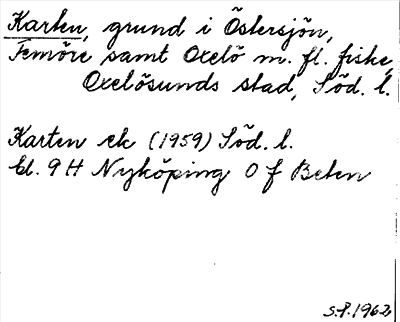 Karten, grund i Östersjön,
Femöre samt Oxelö m. fl. fiske,
Oxelösunds stad, Söd. l.
Karten ek (1959) Söd. l.
bl. 9H Nyköping O f Beten
S.P. 1962